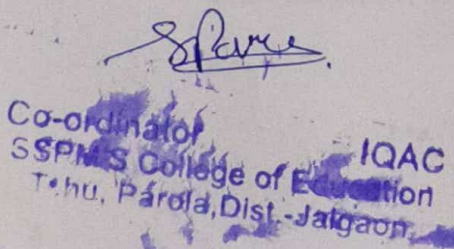 Co-ordinator IQAC
SSPM'S College of Education
Tehu, Parola, Dist.-Jalgaon